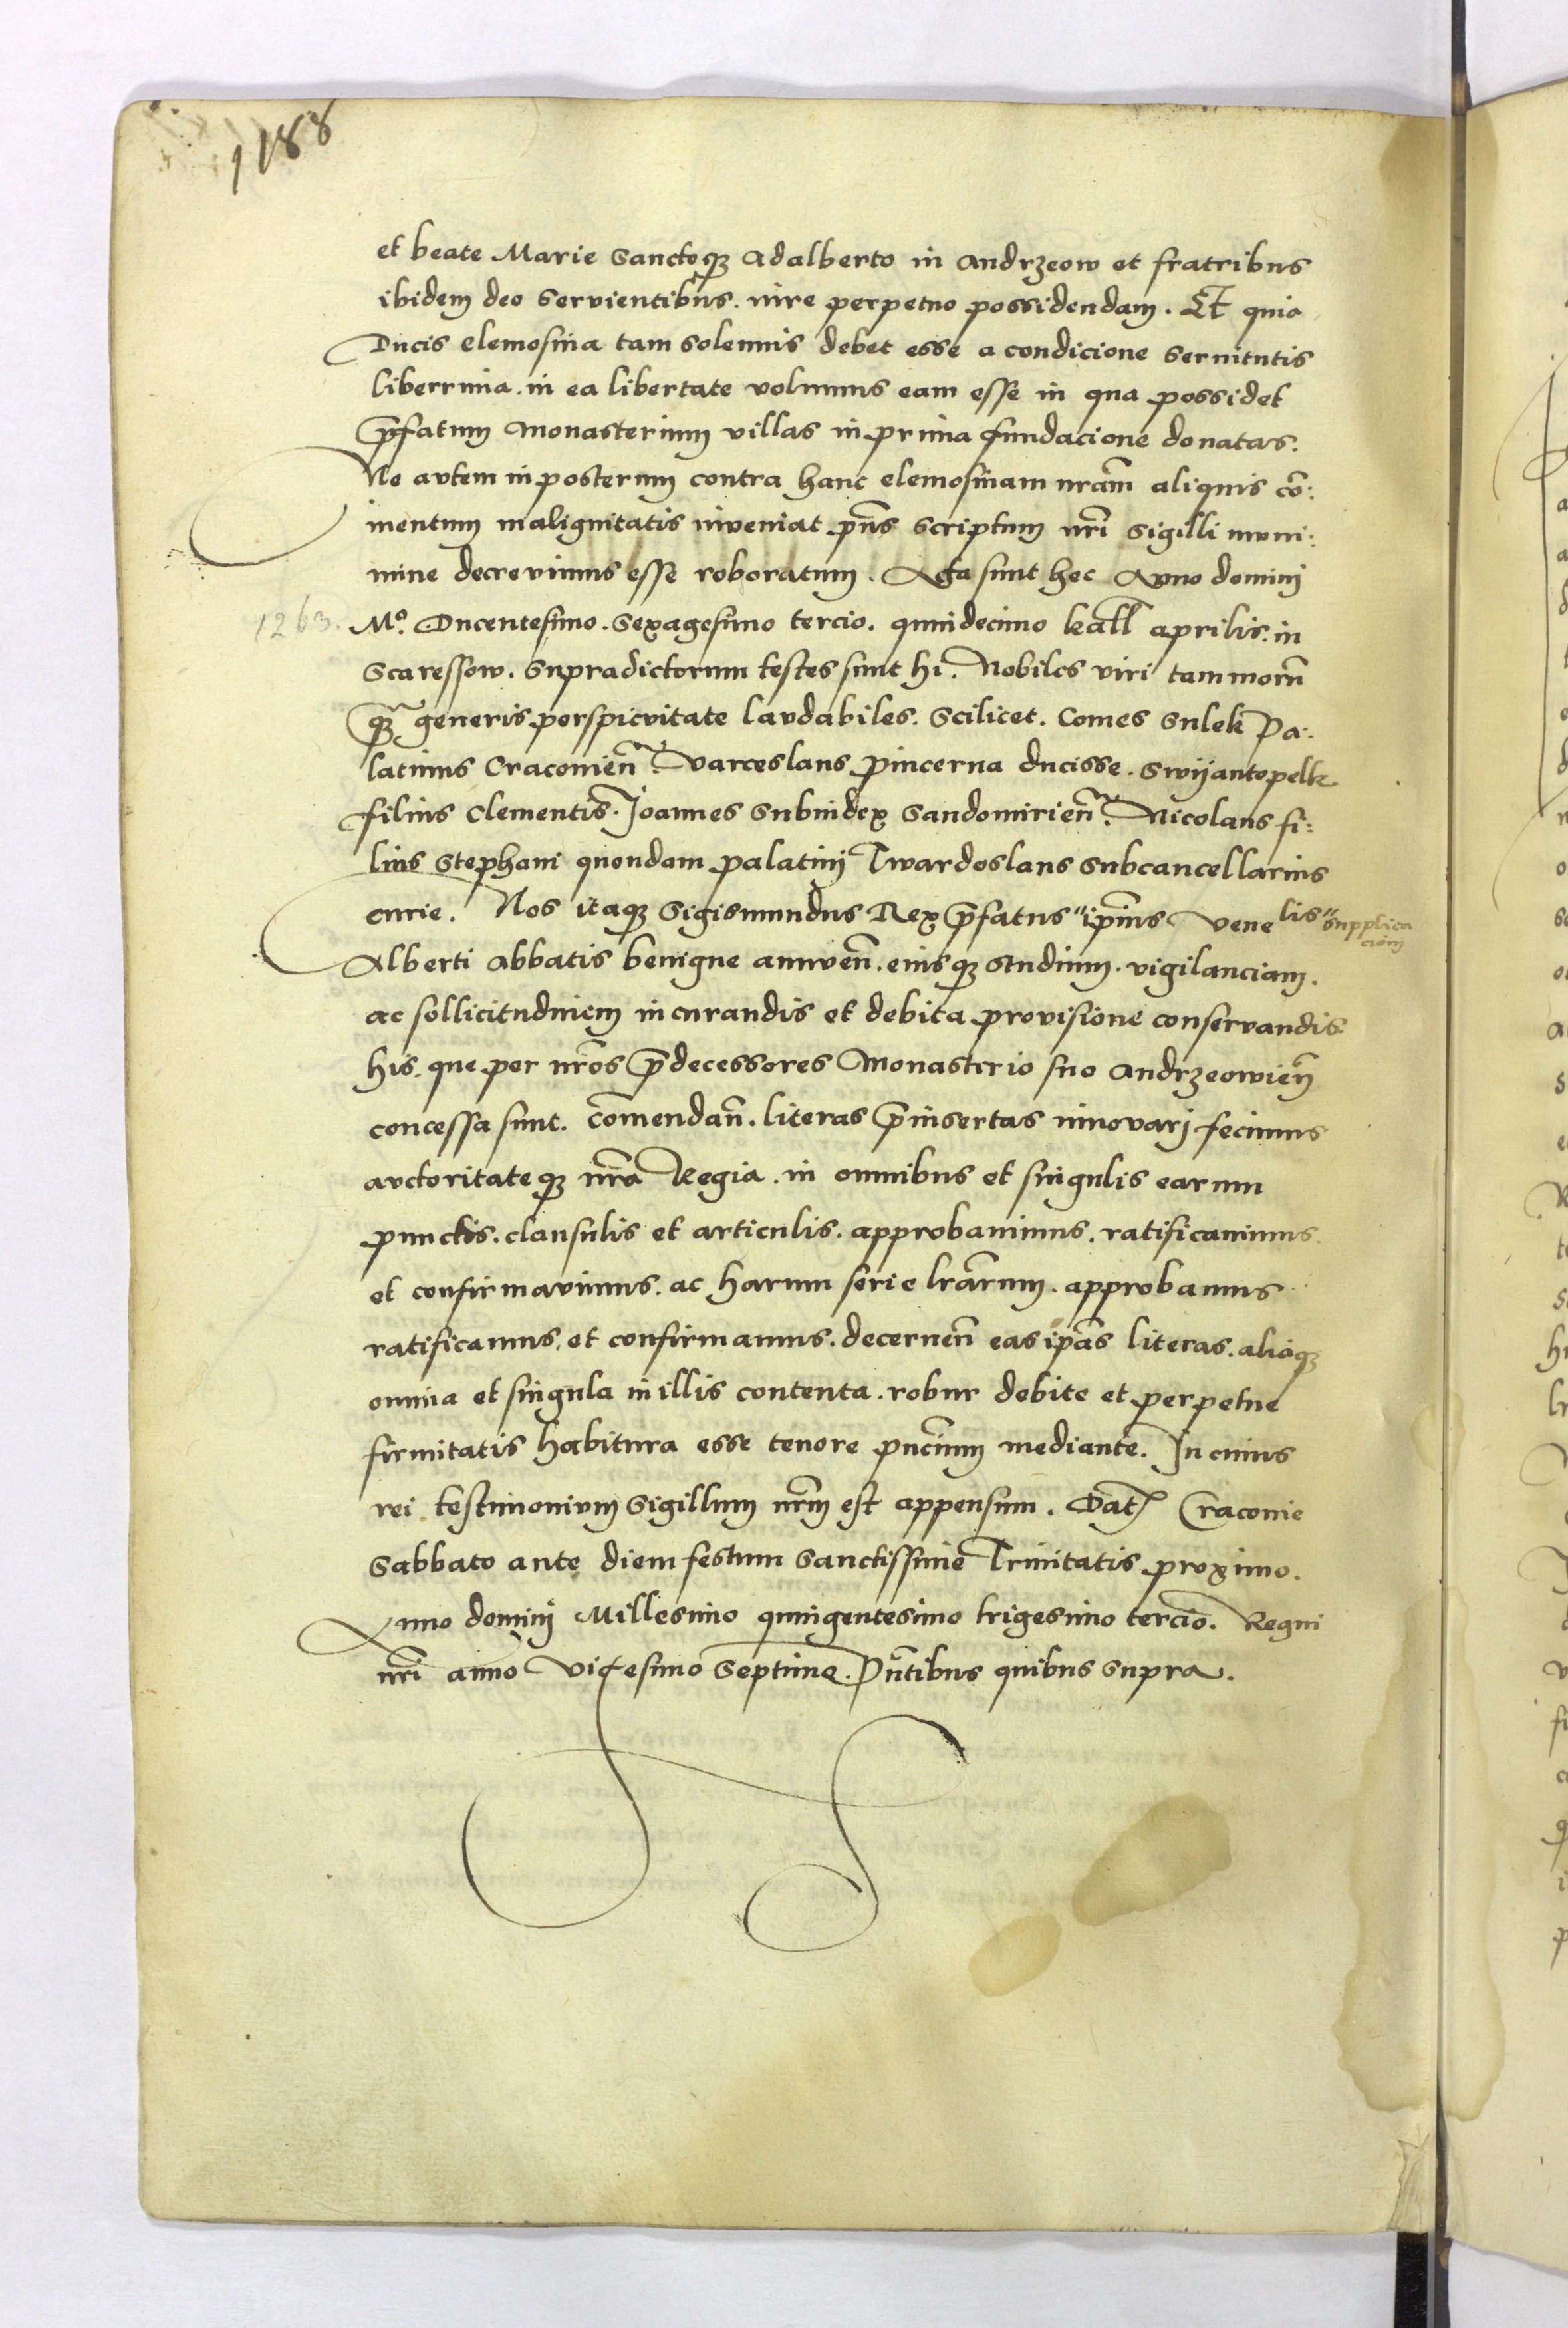 1188
et beate Marie Sanctoq̢ Adalberto in Andrzeow et fratribus
ibidem deo servientibus. iure perpetuo possidendam. Et quia
Ducis elemosina tam solemnis debet esse a condicione servitutis
liberrima. in ea libertate volumus eam esse in qua possidet
p̄fatum Monasterium villas in prima fundacione donatas.
Ne autem in posterum contra hanc elemosinam nr̄am aliquis co̅:
mentum malignitatis inveniat pn̄s scriptum nr̄i sigilli muni:
mine decrevimus esse roboratum. Acta sunt hec Anno domini
1263. Mº. Ducentesimo. Sexagesimo tercio. quindecimo kall̄ aprilis. in
Scaressow. Supradictorum testes sunt hi. Nobiles viri tam morū
q̢ generis perspicuitate laudabiles. Scilicet. Comes Sulek Pa:
latinus Cracovien̄. Varceslaus pincerna ducisse. Swijantopelk
filius Clementis. Joannes Subiudex Sandomirien̄. Nicolaus fi:
lius Stephani quondam palatini Twardoslaus Subcancellarius
curie. Nos itaq̢ Sigismundus Rex p̄fatus "ip̄ius venelis" supplica
cioni
Alberti Abbatis benigne annuen̄. eiusq̢ studium. vigilanciam.
ac sollicitudinem in curandis et debita provisione conservandis
his. que per nr̄os p̄decessores Monasterio suo Andrzeowien̄
concessa sunt. co̅mendan̄. literas p̄insertas innovari fecimus
auctoritateq̢ nr̄a Regia. in omnibus et singulis earum
punctis. clausulis et articulis. approbavimus. ratificavimus.
et confirmavimus. ac harum serie lr̄arum. approbamus
ratificamus. et confirmamus. decernen̄ eas ip̄as literas. aliaq̢
omnia et singula in illis contenta. robur debite et perpetue
firmitatis habitura esse tenore pn̄cium mediante. In cuius
rei testimonium Sigillum nr̄m est appensum. Dat̄ Cracovie
Sabbato ante diem festum Sanctissime Trinitatis proximo.
Anno domini Millesimo quingentesimo trigesimo tercio. Regni
nr̄i anno vicesimo Septimo. Pn̄tibus quibus supra.